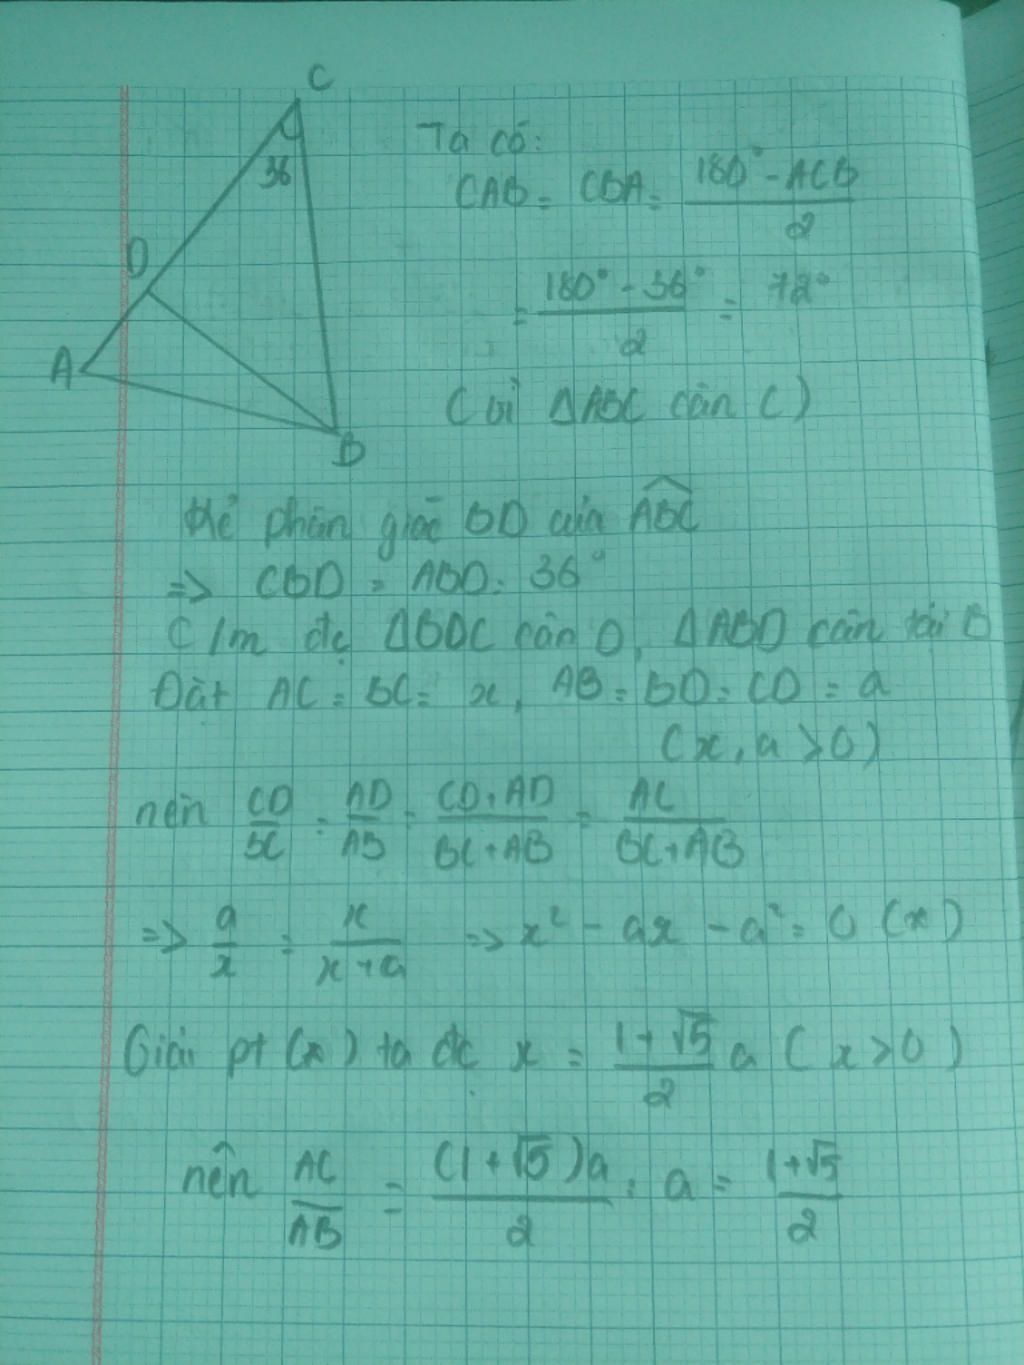 C
36
D
A
B
Ta có:
CAB = CBA = \frac{180° - ACB}{2}
= \frac{180° - 36°}{2} = 72°
(vì ΔABC cân C)
Kẻ phân giác BD của \widehat{ABC}
=> CBD = ABD = 36°
C/m đc ΔBDC cân D, ΔABD cân tại B
Đặt AC = BC = x, AB = BD = CD = a
(x, a > 0)
nên \frac{CD}{BC} = \frac{AD}{AB} = \frac{CD + AD}{BC + AB} = \frac{AC}{BC + AB}
=> \frac{a}{x} = \frac{x}{x + a} => x² - ax - a² = 0 (*)
Giải pt (*) ta đc x = \frac{1 + √5}{2} a (x > 0)
nên \frac{AC}{AB} = \frac{(1 + √5)a}{2} : a = \frac{1 + √5}{2}